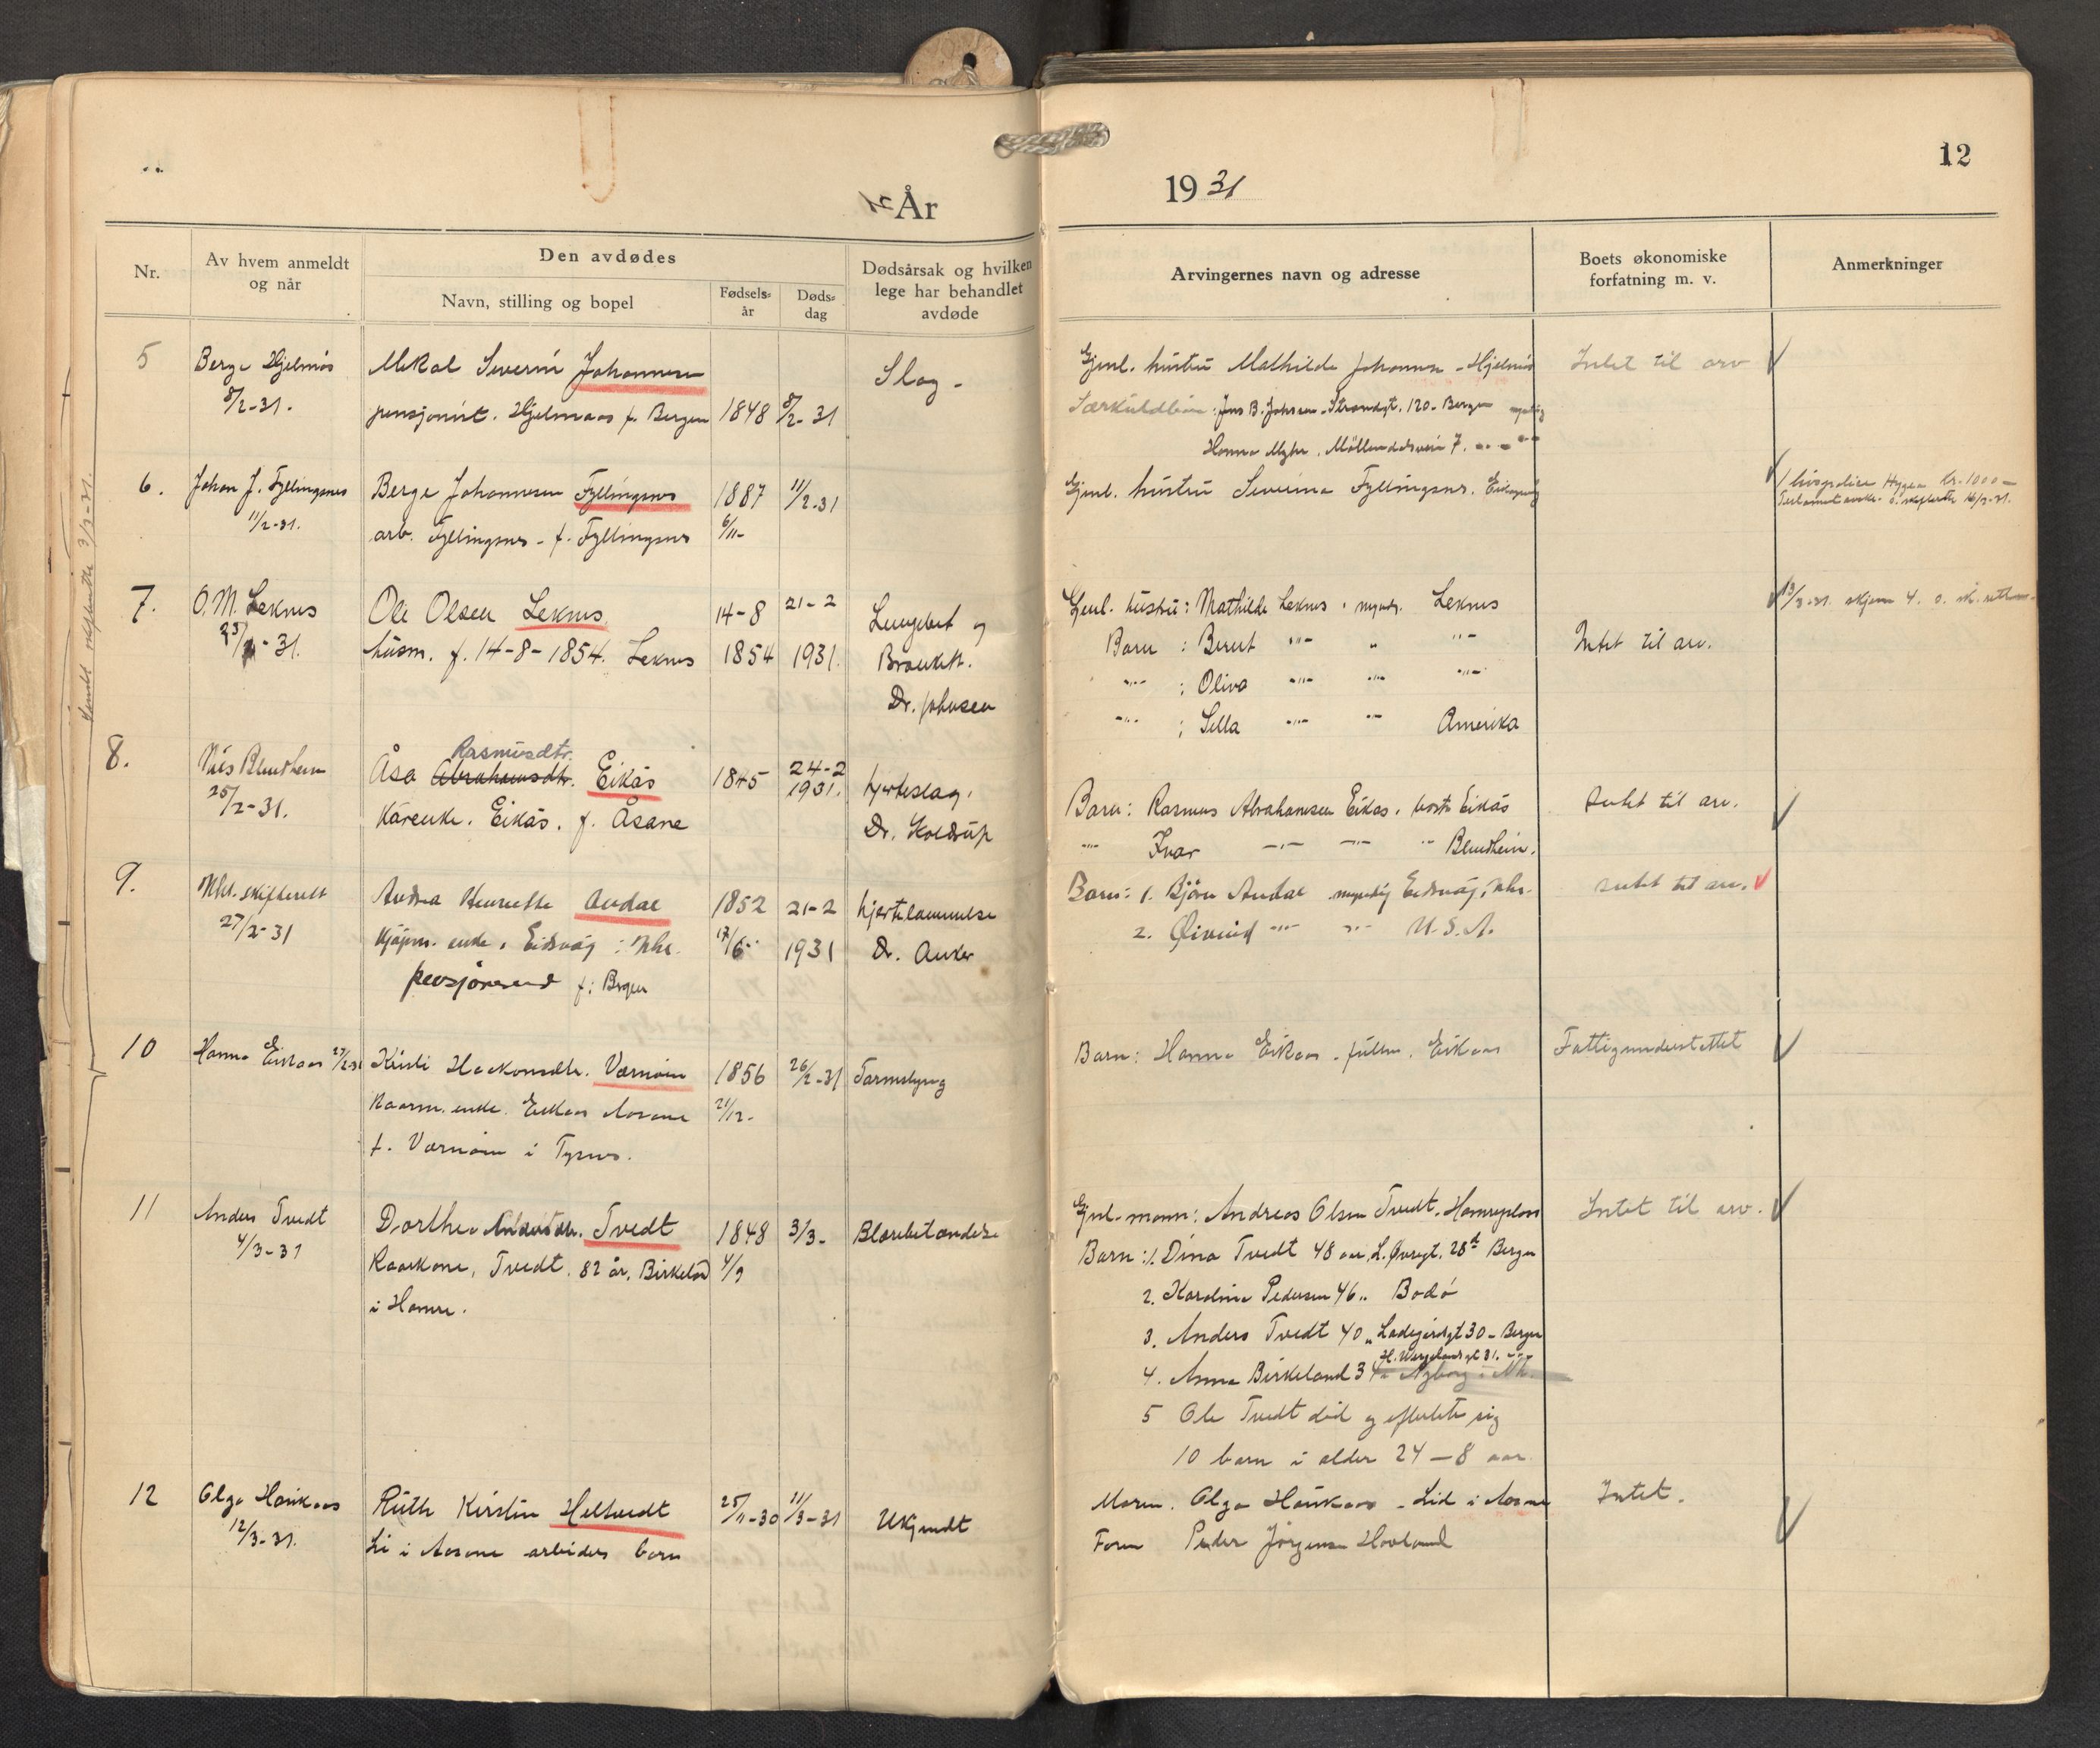 12
År
1931
Nr.
Av hvem anmeldt
og når
Den avdødes
Navn, stilling og bopel
Fødsels-
år
Døds-
dag
Dødsårsak og hvilken
lege har behandlet
avdøde
Arvingernes navn og adresse
Boets økonomiske
forfatning m. v.
Anmerkninger
5
Berge Hjelmås
8/2-31.
Johannesen
pensjonist. Hjelmaas f. Bergen
1848
8/2-31
Slag -
Gjenl. hustru Mathilde Johannesen - Hjelmås
Særkuldbarn: Jens B. Johnsen - Strandgt. 120 - Bergen
Hanna Myhre. 7.
Intet til arv
6.
Johan J. Fyllingsnes
11/2-31.
Berge Johannesen Fyllingsnes
arb. Fyllingsnes - f. Fyllingsnes
1887
6/11-
11/2-31
Gjenl. hustru Severina Fyllingsnes.
1 livspolise Hygea kr. 1000 -
16/3-31.
7.
O. M. Leknes
23/2-31.
Ole Olsen Leknes.
husm. f. 14-8-1854. Leknes
14-8
1854
21-2
1931.
Lungebet og
Bronkit.
Dr. Johnsen
Gjenl. hustru: Mathilde Leknes, myndi. Leknes
Barn : Berert -"- " -"-
-"- : Oliva -"- -"- -"-
-"- : Sella -"- -"- Amerika
Intet til arv.
13/3-31. skjema 4. s. sk. retten
8.
Nils Blindheim
25/2-31.
Rasmusdtr.
Åsa Abrahamsdtr. Eikås
Kårenke. Eikås. f. Åsane
1845
24-2
1931.
hjerteslag.
Dr. Koldrup
Barn: Rasmus Abrahamsen Eikås, Eikås
-"- Ivar -"- -"- -"- Blindheim.
Intet til arv.
9.
Nhl. skifterett
27/2-31
Andrea Henriette Andal
Kjøpm. enke, Eidsvåg i Nhl.
pensjonerend f: Bergen
1852
17/6-
21-2
1931
hjertelammelse
Dr. Anker
Barn: 1. Bjørn Andal myndig Eidsvåg, Nhl.
2. Øivind -"- -"- U.S.A.
Intet til arv.
10
Hanna Eikaas 27/2-31
Kirsti Haakonsdtr. Værnøin
Kaarm. enke. Eikaas Aasane
f. Værnøin i Tysnes.
1856
21/12-
26/2-31
Tarmslyng
Barn: Hanna Eikaas - Eikaas
Fattigunderstøttet
11
Anders Tvedt
4/3-31
Dorthea Andersdtr. Tvedt
Kaarkone, Tvedt. 82 år, Birkeland
i Hamre.
1848
4/9
3/3-
Blærebetændelse
Gjenl. mann: Andreas Olsen Tvedt. Hamreplass
Barn: 1. Dina Tvedt 48 aar, L. Øvregt. 28 Bergen
2. Karoline Pedersen 46 " Bodø
3. Anders Tvedt 40 " Ladegårdsgt 30 - Bergen
H. Wergelandsgt 31. -"-
4. Anna Birkeland 34 " Nyborg i Nh.
5 Ole Tvedt död og efterlot sig
10 barn i alder 24 - 8 aar.
Intet til arv.
12
Olga Haukaas
12/3-31.
Ruth Kirstin Heltvedt
Li i Aasane arbeiders barn
25/11-30
11/3-31
Ukjendt
Moren. Olga Haukaas - Lid i Aasane
Faren Peder Jørgensen Hovland
Intet.